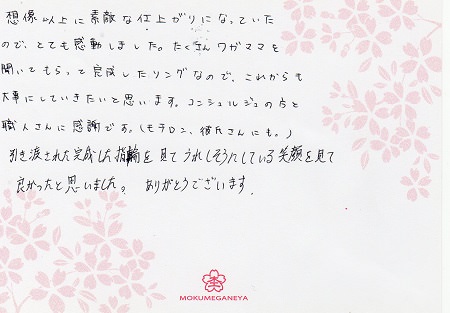 想像以上に素敵な仕上がりになっていた
ので、とても感動しました。たくさんワガママを
聞いてもらって完成したリングなので、これからも
大事にしていきたいと思います。コンシェルジュの方と
職人さんに感謝です。(モチロン、彼氏さんにも。)
引き渡された完成した指輪を見てうれしそうにしている笑顔を見て
良かったと思いました。ありがとうございます。
MOKUMEGANEYA